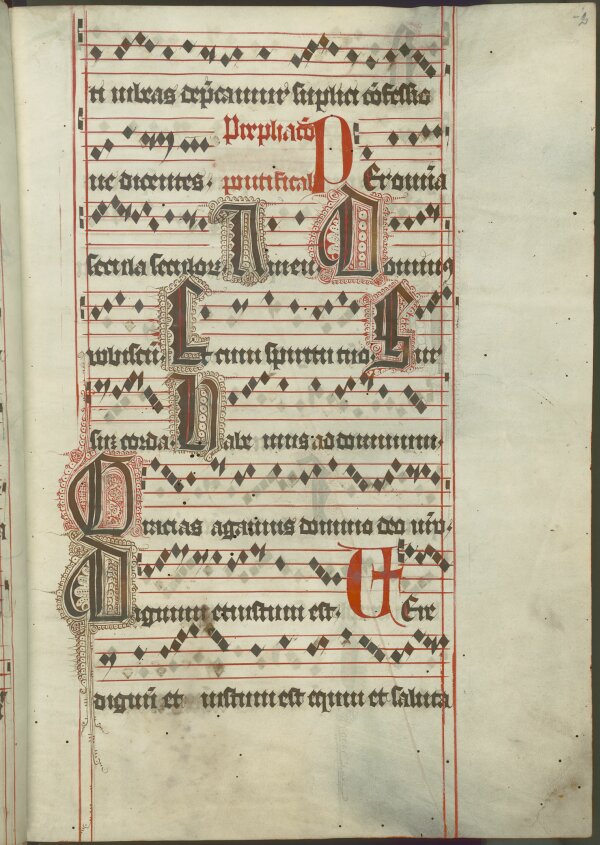 2
ti iubeas dep̄camur suplici cōfessio
Prephacō
ne dicentes. pontifical P Er omīa
secula seculor. Amen. Dominus
vobiscū. Et cum spiritu tuo. Sur
sūz corda. Habe mus ad dominum.
Gracias agamus domino deo nr̄o.
Dignum et iustum est. VEre
dignū et iustum est equm et saluta